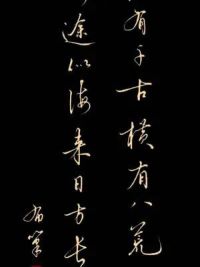 有千古横有八荒
途似海来日方长